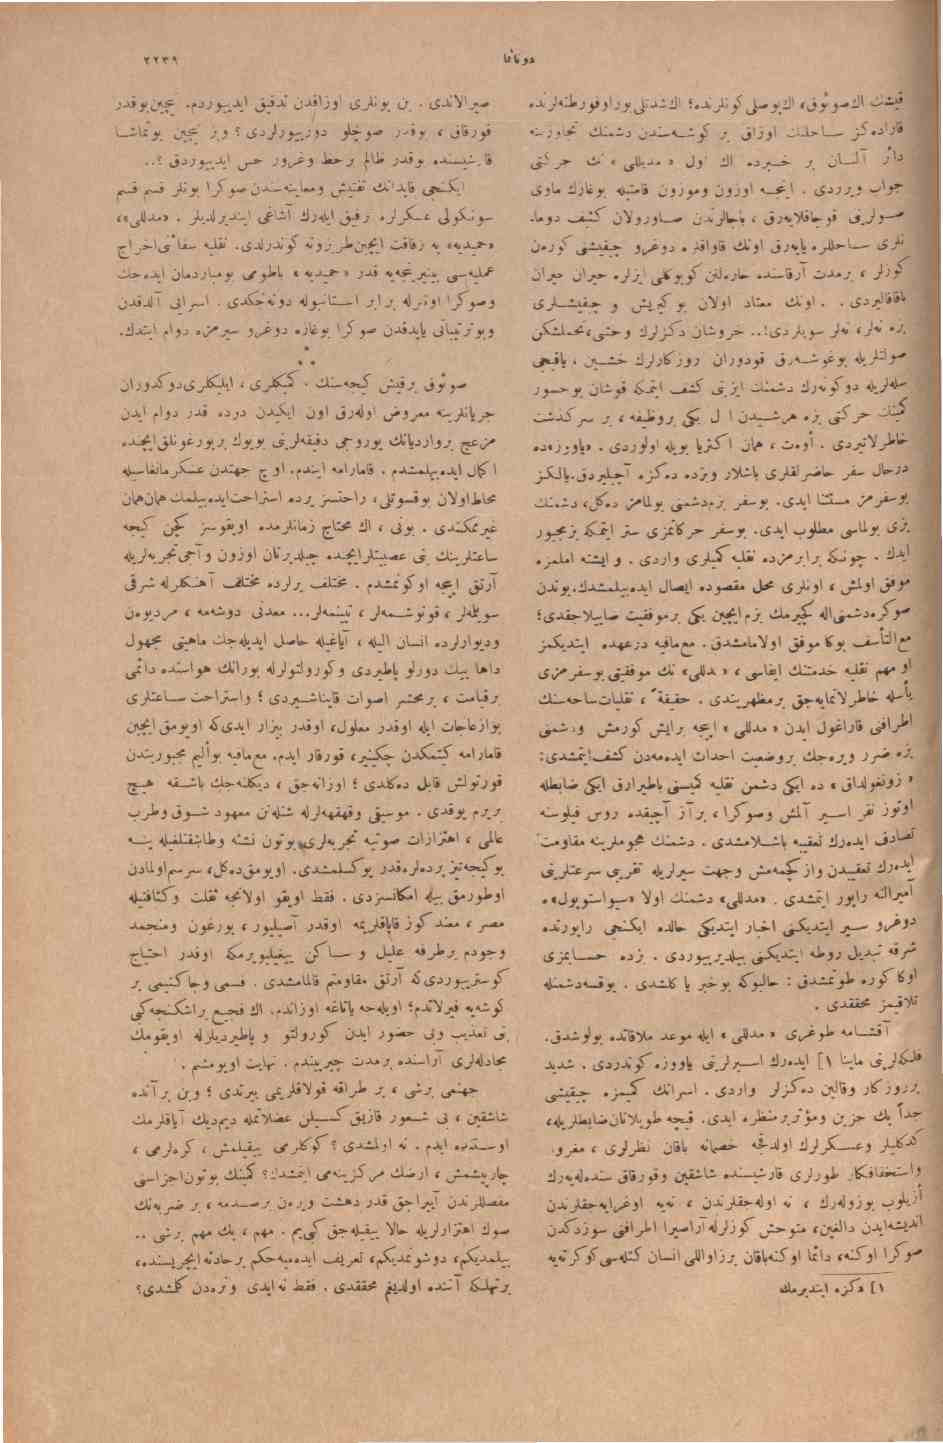 دوناﻧﻤﺎ
٢٢٣٩
قیشك اك صوئوق، اك بوصلی كونلرنده؛ اك شدتلی بورا و فورطنه‌لرنده
قاراده‌كز ساحلنك اوزاق بر كوشه‌سندن دشمنك تجاوزینه
دائر آلنان بر خبرده اك اول « مدیللی » نك حركتی
جواب ویرردی . اینجه اوزون وموزون قامتیله بوغازك ماوی
صولرینی قوجاقلایه‌رق ، باجالرندن صاورولان كثیف دوما-
نلری ساحللره یایه‌رق اونك قاواقلره دوغرو چیقیشنی كوره‌ن
كوزلر ، برمدت آرقاسنده حاره‌لنن كوپوكلی ایزلره حیران حیران
باقاقالیردی . . اونك معتاد اولان بو كیریش و چیقیشلری
بزه نه‌لر، نه‌لر سویلردی!.. خروشان دكزلرك وحشی، تحملشكن
صولتلریله بوغوشه‌رق قودوران روزكارلرك خشین ، یاقیجی
سیله‌لریله دوكونه‌رك دشمنك ایزینی كشف ایتمكه قوشان بوجسور
كمینك حركتی بزه هرشیدن اول یكی بروظیفه ، بر سركذشت
خاطرلاتیردی . أوەت ، همان اكثریا بویله اولوردی . «یاوزـ» ده
درحال سفر حاضرلقلری باشلار وبزده ده‌كزه آچیلیردق. یالكز
بوسفرمز مستثنا ایدی. بوسفر بزم دشمنی بولمامز ده‌كل، دشمنك
بزی بولماسی مطلوب ایدی. بوسفر حركاتمزی ستر ایتمكه بزمجبور
ایدك . چونكه برابرمزده نقلیه كمیلری واردی . و ایشته املمزه
موفق اولمش ، اونلری محل مقصوده ایصال ایده‌بیلمشدك. بوندن
صوكره دشمنی اله كچیرمك بزم ایچین یكی برموفقیت صاییلاجقدی؛
مع‌التأسف بوكا موفق اولامامشدق . مع‌مافیه درعهده ایتدیكمز
او مهم نقلیه خدمتنك ایفاسی ، « مدللی » نك موفقیتی بوسفرمزی
یأسله خاطرلانمایه‌جق برمظهریتدی . حقیقةً ، نقلیات ساحه‌سنك
اطرافنی قاراغول ایدن « مدللی » ایجه برایش كورمش ودشمنی
بزه ضرر ویره‌جك بروضعیت احداث ایده‌مه‌دن كشف ایتمشدی:
« زونغولداق » ده ایكی دشمن نقلیه كمیسنی باطیرارق ایكی ضابطله
اوتوز نفر اسیر آلمش وصوكرا ، برآز آچیقده روس فیلوسنه
تصادف ایده‌رك تعقیبه باشلامشدی . دشمنك هجوملرینه مقاومت
ایده‌رك تعقیبدن واز كچمه‌مش وجهت سیرلریله تقریبی سرعتلرینی
آمیراله راپور ایتمشدی . «مدللی» دشمنك اولا «سیواستوپول» ه
دوغرو سیر ایتدیكنی اخبار ایتدیكی حالده ایكنجی راپورنده
شرقه تبدیل روطه ایتدیكنی بیلدیریوردی . بزده حسابمزی
اوكا كوره طوتمشدق : حالبوكه بوخبر یاكلشدی . بوقسه دشمنله
تلاقیمز محققدی .
آقشامه طوغری « مدللی » ایله موعد ملاقاتده بولوشدق.
فلیكه‌لرینی ماینا ١] ایده‌رك اسیرلرینی یاووزه كوندردی . شدید
برروزكار وقالین ده‌كزلر واردی . اسرانك كمیمزه چیقیشی
جداً پك حزین ومؤثر برمنظره ایدی. قیچه طوپلانان ضابطلریله،
كدكلیلر وعسكرلرك اولدقجه خصمانه باقان نظرلری ، مغرور
واستخفافكار طورلری قارشیسنده شاشقین وقورقاق سنده‌له‌یه‌رك
أزیلوب بوزوله‌رك ، نه اوله‌جقلرندن ، نه‌یه اوغرایه‌جقلرندن
اندیشه‌ایدن دالغین، متوحش كوزلرله آراصیرا اطرافنی سوزدكدن
صوكرا اوكنه، دائما اوكنه‌باقان برزاواللی انسان كتله‌سی كوكرته‌یه
١] دكزه ایندیرمك
صیرالاندی . بن بونلری اوزاقدن تدقیق ایدییوردم. نیچین بوقدر
قورقاق ، بوقدر صوچلو دورییورلردی ؟ وبز نیچین بوتماشا
قارشیسنده بوقدر ظالم برحظ وغرور حس ایدییوردق ؟..
ایكنجی قاپدانك تفتیش ومعاینه‌سندن صوكرا بونلر قسم قسم
سونكولی عسكرلره رفیق ایله‌رك آشاغی ایندیرلدیلر . «مدللی»،
«حمیدیه» یه رفاقت ایچین طربزونه كوندرلدی. نقلیه سفائنی اخراج
عملیه‌سی بیتیرنجه‌یه قدر « حمیدیه » باطومی بومباردمان ایده‌جك
وصوكرا اونلرله برابر استانبوله دونه‌جكدی . اسرایی آلدقدن
وبوترتیباتی یاپدقدن صوكرا بوغازه دوغرو سیرمزه دوام ایتدك.
* * *
صوئوق برقیش كیجه‌سنك ، كمیكلری ، ایلیكلری دوكدوران
جریانلرینه معروض اوله‌رق اون ایكیدن درده قدر دوام ایدن
مزعج برواردیانك یوروجی دقیقه‌لرینی بویوك بریورغونلق ایچنده
اكمال ایده‌بیلمشدم . قامارامه ایندم. اوچ جهتدن عسكر مانغاسیله
محاط اولان بوقسوتلی ، راحتسز یرده استراحت ایده‌بیلمك همان همان
غیرممكندی . بونی ، اك محتاج زمانلرمده اویقوسز كچن كیجه
ساعتلرینك بنی عصبیتلر ایچنده چیلدیرتان اوزون وآجی تجربه‌لریله
آرتق اییجه اوكرنمشدم . مختلف یرلرده مختلف آهنكلرله شرقی
سویلمه‌لر ، قونوشمه‌لر ، تپینمه‌لر... معدنی دوشه‌مه ، مردیوەن
ودیوارلرده انسان الیله ، آیاغیله حاصل ایدیله‌جك ماهیتی مجهول
داها بیك دورلو پاطیردی وكورولتولرله بورانك هواسنده دائمی
برقیامت ، برمحشر اصوات قایناشیردی ؛ واستراحت ساعتلری
بوازعاجات ایله اوقدر معلول، اوقدر بیزار ایدی‌كه اویومق ایچین
قامارامه كیتمكدن چكینیر، قورقار ایدم. مع‌مافیه بوألیم مجبوریتدن
قورتولمش قابل ده‌كلدی ؛ اوزانه‌جق ، دیكلنه‌جك باشقه هیچ
بریرم یوقدی . موسیقی وقهقهه‌لرله شنله‌نن معهود شوق وطرب
عالمی ، اهتزازات صوتیه تجربه‌لری بوتون نشئه وطاشقنلغیله ینه
بوكیجه تیز پرده‌لره‌قدر یوكسلمشدی. اویومق ده‌كل، سرسم اولمادن
اوطورمق بیله امكانسزدی . فقط اویقو اولانجه ثقلت وكثافتیله
مصر ، معند كوز قاپاقلریمه اوقدر آصیلیور ، یورغون ومنجمد
وجودم برطرفه علیل و ساكن ییغیلیویرمكه اوقدر احتیاج
كوسترییوردی‌كه آرتق مقاومتم قالمامشدی . قسمی وجاكتیمی بر
كوشه‌یه فیرلاتدم؛ اویله‌جه یاتاغه اوزاندم. اك فجیع براشكنجه كی
بنی تعذیب وبی حضور ایدن كورولتو و پاطیردیلرله اویقومك
مجادله‌لری آراسنده برمدت چیرپیندم . نهایت اویومشم .
جهنمی برشی ، بر طراقه قولاقلریمی ییرتدی ؛ وبن برآنده
شاشقین ، بی شعور قازیق كسیلن عضلاتمله دیم‌دیك آیاقلرمك
اوستنده ایدم . نه اولمشدی ؟ كوكلرمی ییقیلمش ، كره‌لرمی ،
چارپیشمش ، ارضك مركزینه‌می ایتمشدك؟ كمینك بوتون اجزاسنی
مفصللرندن آییراجق قدر دهشت ویره‌ن برصدمه ، بر ضربه‌نك
صوك اهتزازلریله حالا ییقیله‌جق كی‌یم . مهم ، پك مهم برشی ..
بیلمدیكم، دوشونمدیكم، تعریف ایده‌میه‌جكم برحادثه ایچریسنده،
برتهلكه آننده اولدیغم محققدی . فقط نه ایدی ونره‌دن كلمشدی؟